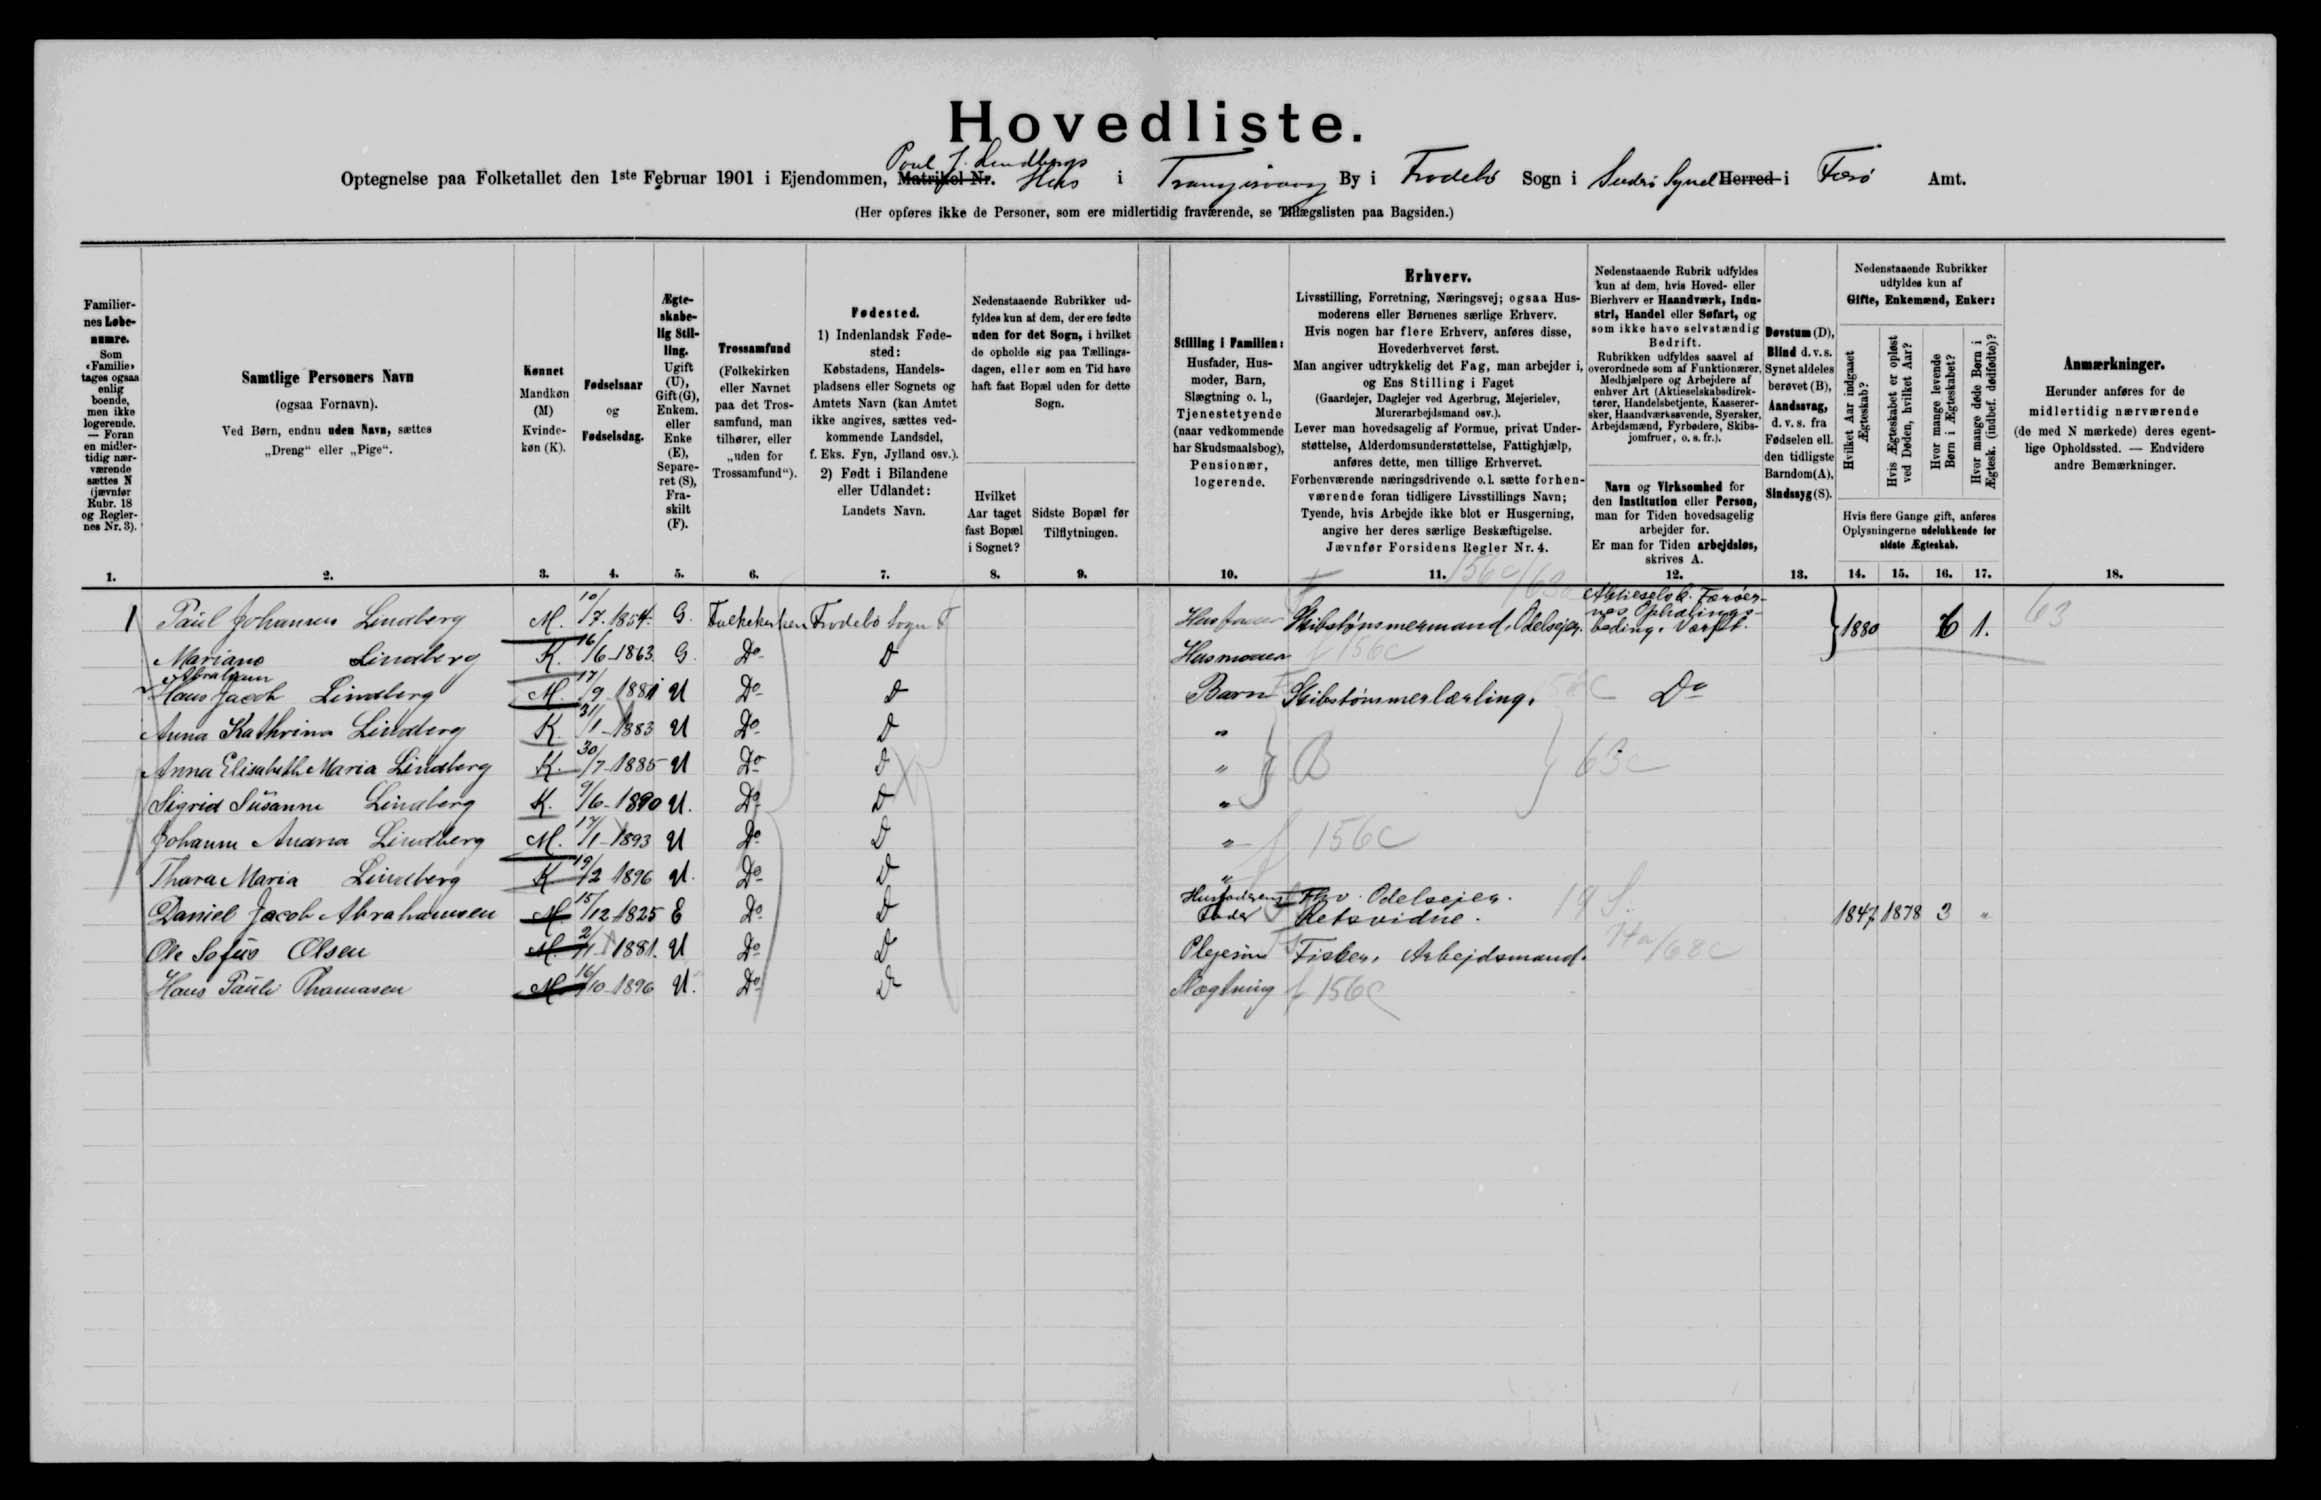 Hovedliste.
Poul J. Lindbergs
Optegnelse paa Folketallet den 1ste Februar 1901 i Ejendommen, Matrikel Nr. Hus i Trangisvaag By i Frodebø Sogn i Suderø Syssel Herred i Færø Amt.
(Her opføres ikke de Personer, som ere midlertidig fraværende, se Tillægslisten paa Bagsiden.)
Familier-
nes Løbe-
numre.
Som
«Familie»
tages ogsaa
enlig
boende,
men ikke
logerende.
— Foran
en midler-
tidig nær-
værende
sættes N
(jævnfør
Rubr. 18
og Regler-
nes Nr. 3).
Samtlige Personers Navn
(ogsaa Fornavn).
Ved Børn, endnu uden Navn, sættes
„Dreng“ eller „Pige“.
Kønnet
Mandkøn
(M)
Kvinde-
køn (K).
Fødselsaar
og
Fødselsdag.
Ægte-
skabe-
lig Stil-
ling.
Ugift
(U),
Gift (G),
Enkem.
eller
Enke
(E),
Separe-
ret (S),
Fra-
skilt
(F).
Trossamfund
(Folkekirken
eller Navnet
paa det Tros-
samfund, man
tilhører, eller
„uden for
Trossamfund“).
Fødested.
1) Indenlandsk Føde-
sted:
Købstadens, Handels-
pladsens eller Sognets og
Amtets Navn (kan Amtet
ikke angives, sættes ved-
kommende Landsdel,
f. Eks. Fyn, Jylland osv.).
2) Født i Bilandene
eller Udlandet:
Landets Navn.
Nedenstaaende Rubrikker ud-
fyldes kun af dem, der ere fødte
uden for det Sogn, i hvilket
de opholde sig paa Tællings-
dagen, eller som en Tid have
haft fast Bopæl uden for dette
Sogn.
Hvilket
Aar taget
fast Bopæl
i Sognet?
Sidste Bopæl før
Tilflytningen.
Stilling i Familien:
Husfader, Hus-
moder, Barn,
Slægtning o. l.,
Tjenestetyende
(naar vedkommende
har Skudsmaalsbog),
Pensionær,
logerende.
Erhverv.
Livsstilling, Forretning, Næringsvej; ogsaa Hus-
moderens eller Børnenes særlige Erhverv.
Hvis nogen har flere Erhverv, anføres disse,
Hovederhvervet først.
Man angiver udtrykkelig det Fag, man arbejder i,
og Ens Stilling i Faget
(Gaardejer, Daglejer ved Agerbrug, Mejerielev,
Murerarbejdsmand osv.).
Lever man hovedsagelig af Formue, privat Under-
støttelse, Alderdomsunderstøttelse, Fattighjælp,
anføres dette, men tillige Erhvervet.
Forhenværende næringsdrivende o. l. sætte forhen-
værende foran tidligere Livsstillings Navn;
Tyende, hvis Arbejde ikke blot er Husgerning,
angive her deres særlige Beskæftigelse.
Jævnfør Forsidens Regler Nr. 4.
Nedenstaaende Rubrik udfyldes
kun af dem, hvis Hoved- eller
Bierhverv er Haandværk, Indu-
stri, Handel eller Søfart, og
som ikke have selvstændig
Bedrift.
Rubrikken udfyldes saavel af
overordnede som af Funktionærer,
Medhjælpere og Arbejdere af
enhver Art (Aktieselskabsdirek-
tører, Handelsbetjente, Kasserer-
sker, Haandværkssvende, Syersker,
Arbejdsmænd, Fyrbødere, Skibs-
jomfruer, o. s. fr.).
Navn og Virksomhed for
den Institution eller Person,
man for Tiden hovedsagelig
arbejder for.
Er man for Tiden arbejdsløs,
skrives A.
Døvstum (D),
Blind d. v. s.
Synet aldeles
berøvet (B),
Aandssvag,
d. v. s. fra
Fødselen ell.
den tidligste
Barndom (A),
Sindssyg (S).
Nedenstaaende Rubrikker
udfyldes kun af
Gifte, Enkemænd, Enker:
Hvilket Aar indgaaet
Ægteskab?
Hvis Ægteskabet er opløst
ved Døden, hvilket Aar?
Hvor mange levende
Børn i Ægteskabet?
Hvor mange døde Børn i
Ægtesk. (indbef. dødfødte)?
Hvis flere Gange gift, anføres
Oplysningerne udelukkende for
sidste Ægteskab.
Anmærkninger.
Herunder anføres for de
midlertidig nærværende
(de med N mærkede) deres egent-
lige Opholdssted. — Endvidere
andre Bemærkninger.
1. 2. 3. 4. 5. 6. 7. 8. 9. 10. 11. 12. 13. 14. 15. 16. 17. 18.
156c/63a
1 Paul Johannes Lindberg M. 10/7 1854 G. Folkekirken Frodebø Sogn F Husfader Skibstømmermand, Odelsejer. Aktieselsk. Færøer-
nes Ophalings-
beding. Værft. 1880 6 1. 63
Mariane Lindberg K. 16/6 1863 G. Do D Husmoder f 156c
Abraham
Hans Jacob Lindberg M. 17/9 1881 U Do D Barn Skibstømmerlærling. Do
Anna Kathrina Lindberg K. 31/1 1883 U Do D "
Anna Elisabeth Maria Lindberg K. 30/7 1885 U Do D " B 63c
Sigrid Susanne Lindberg K. 9/6 1890 U. Do D "
Johann Andrea Lindberg M. 17/1 1893 U Do D " f 156c
Thora Maria Lindberg K 19/2 1896 U. Do D "
Daniel Jacob Abrahamsen M. 15/12 1825 E Do D Husfaderens
Fader Fhv. Odelsejer.
Retsvidne. 19 S. 1847 1878 3 "
Ole Sofus Olsen M. 2/1 1881. U Do D Plejesøn Fisker, Arbejdsmand. 14a/68c
Hans Pauli Thomasen M. 16/10 1896 U. Do D Slægtning f 156c